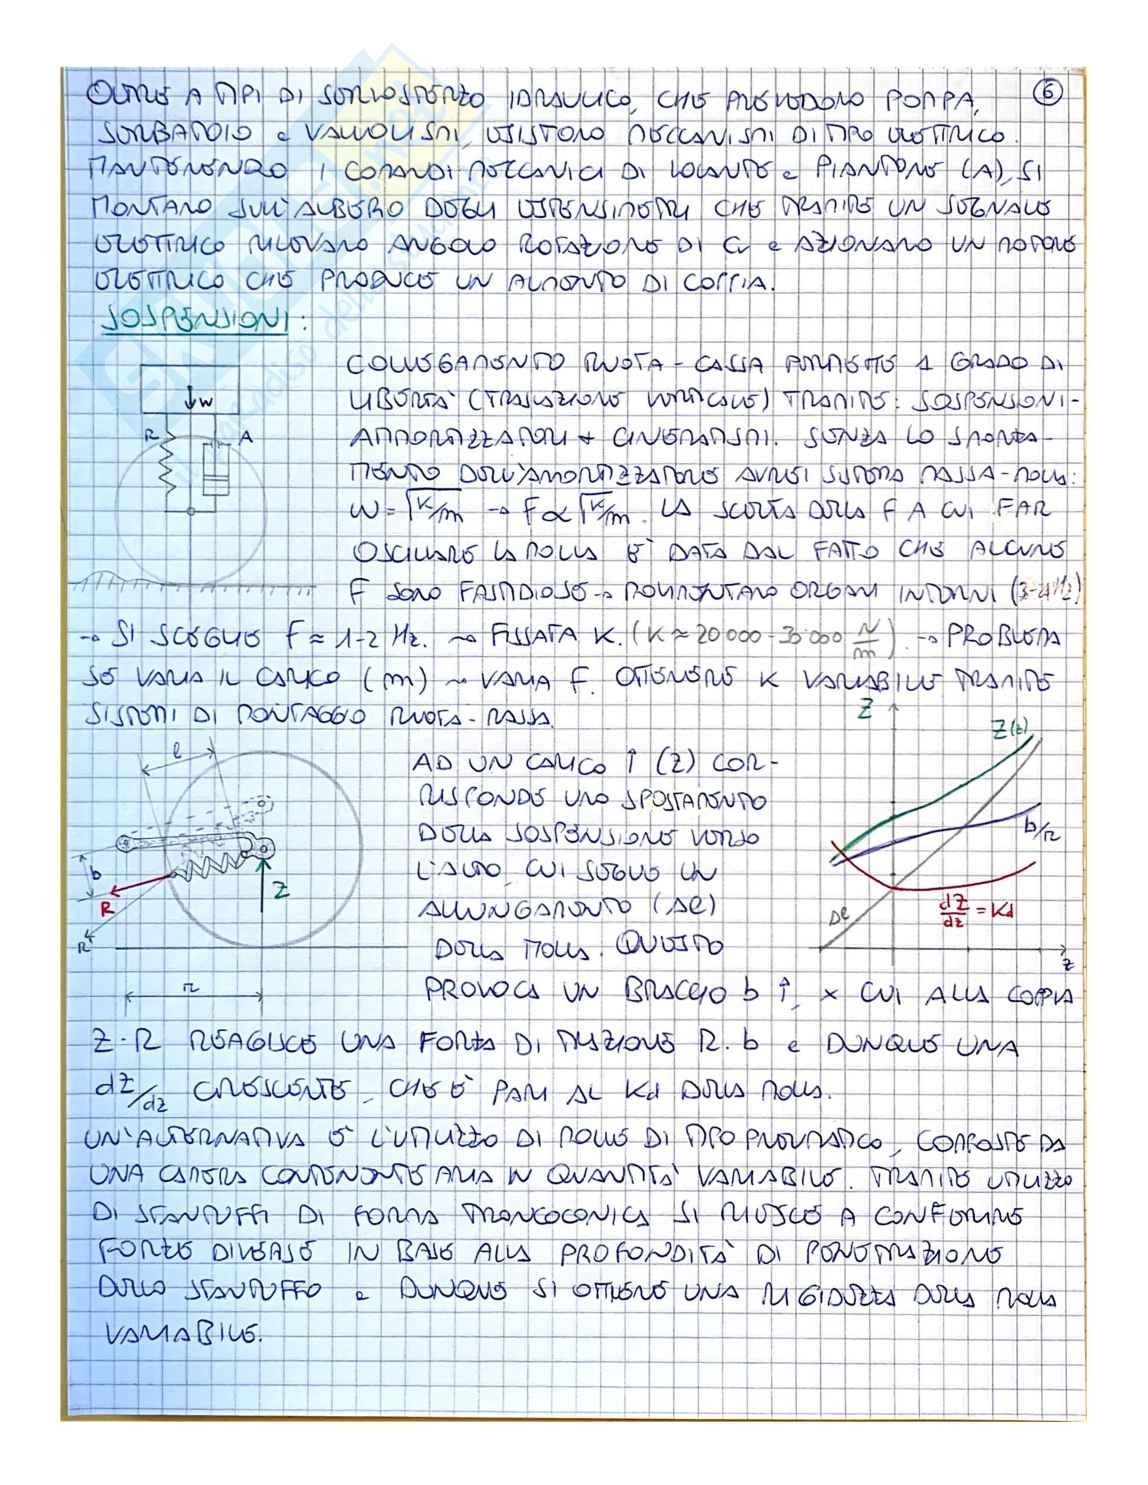 6
OLTRE A TIPI DI SERVOSTERZO IDRAULICO, CHE PREVEDONO POMPA,
SERBATOIO e VALVOLISMI, ESISTONO MECCANISMI DI TIPO ELETTRICO.
MANTENENDO I COMANDI MECCANICI DI VOLANTE e PIANTONE (A), SI
MONTANO SULL'ALBERO DEGLI ESTENSIMETRI CHE TRAMITE UN SEGNALE
ELETTRICO RILEVANO ANGOLO ROTAZIONE DI C e AZIONANO UN MOTORE
ELETTRICO CHE PRODUCE UN AUMENTO DI COPPIA.
SOSPENSIONI:
COLLEGAMENTO RUOTA - CASSA PERMETTE 1 GRADO DI
LIBERTA' (TRASLAZIONE VERTICALE) TRAMITE: SOSPENSIONI-
AMMORTIZZATORI + CINEMATISMI. SENZA LO SMORZA-
MENTO DELL'AMORTIZZATORE AVREI SISTEMA MASSA-MOLLA:
W = √K/m → F ∝ √K/m. LA SCELTA DELLA F A CUI FAR
OSCILLARE LA MOLLA E' DATA DAL FATTO CHE ALCUNE
F SONO FASTIDIOSE → MOVIMENTANO ORGANI INTERNI (3-4Hz)
→ SI SCEGLIE F ≈ 1-2 Hz. ~ FISSATA K. (K ≈ 20 000 - 30 000 N/m). → PROBLEMA
SE VARIA IL CARICO (m) ~ VARIA F. OTTENERE K VARIABILE TRAMITE
SISTEMI DI MONTAGGIO RUOTA-MASSA.
W
R
A
AD UN CARICO ↑ (Z) COR-
RISPONDE UNO SPOSTAMENTO
DELLA SOSPENSIONE VERSO
L'ALTO, CUI SEGUE UN
ALLUNGAMENTO (Δl)
DELLA MOLLA. QUESTO
PROVOCA UN BRACCIO b ↑, x CUI ALLA COPPIA
l
b
R
R
Z
r
Z
Z(z)
b/r
Δl
dZ/dz = Kd
z
Z·R REAGISCE UNA FORZA DI TRAZIONE R·b e DUNQUE UNA
dZ/dz CRESCENTE, CHE E' PARI AL Kd DELLA MOLLA.
UN'ALTERNATIVA E' L'UTILIZZO DI MOLLE DI TIPO PNEUMATICO, COMPOSTE DA
UNA CAMERA CONTENENTE ARIA IN QUANTITA' VARIABILE. TRAMITE UTILIZZO
DI STANTUFFI DI FORMA TRONCOCONICA SI RIESCE A CONFERIRE
FORZE DIVERSE IN BASE ALLA PROFONDITA' DI PENETRAZIONE
DELLO STANTUFFO e DUNQUE SI OTTIENE UNA RIGIDEZZA DELLA MOLLA
VARIABILE.